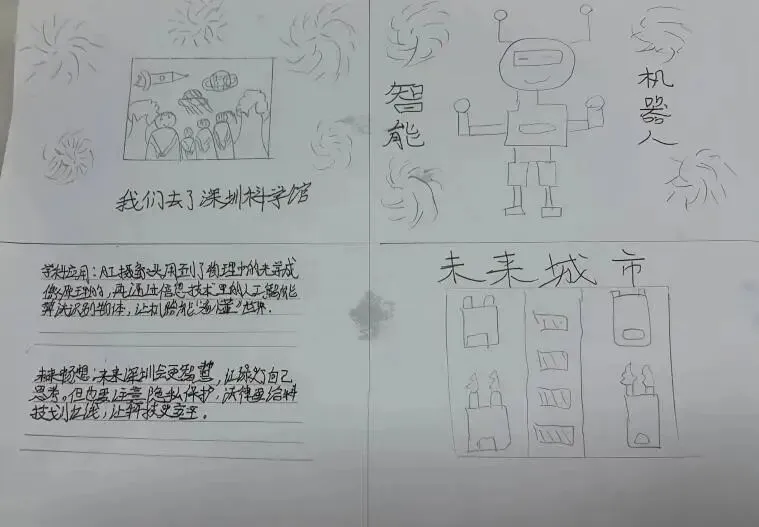 我们去了深圳科学馆
智能
机器人
学科应用：AI摄像头用到了物理中的光学成
像原理的，再通过信息技术里的人工智能
算法识别物体，让机器能"看懂"世界．
未来畅想：未来深圳会更智慧，红绿灯自己
思考。但也要注意隐私保护，法律要给科
技划红线，让科技更安全．
未来城市